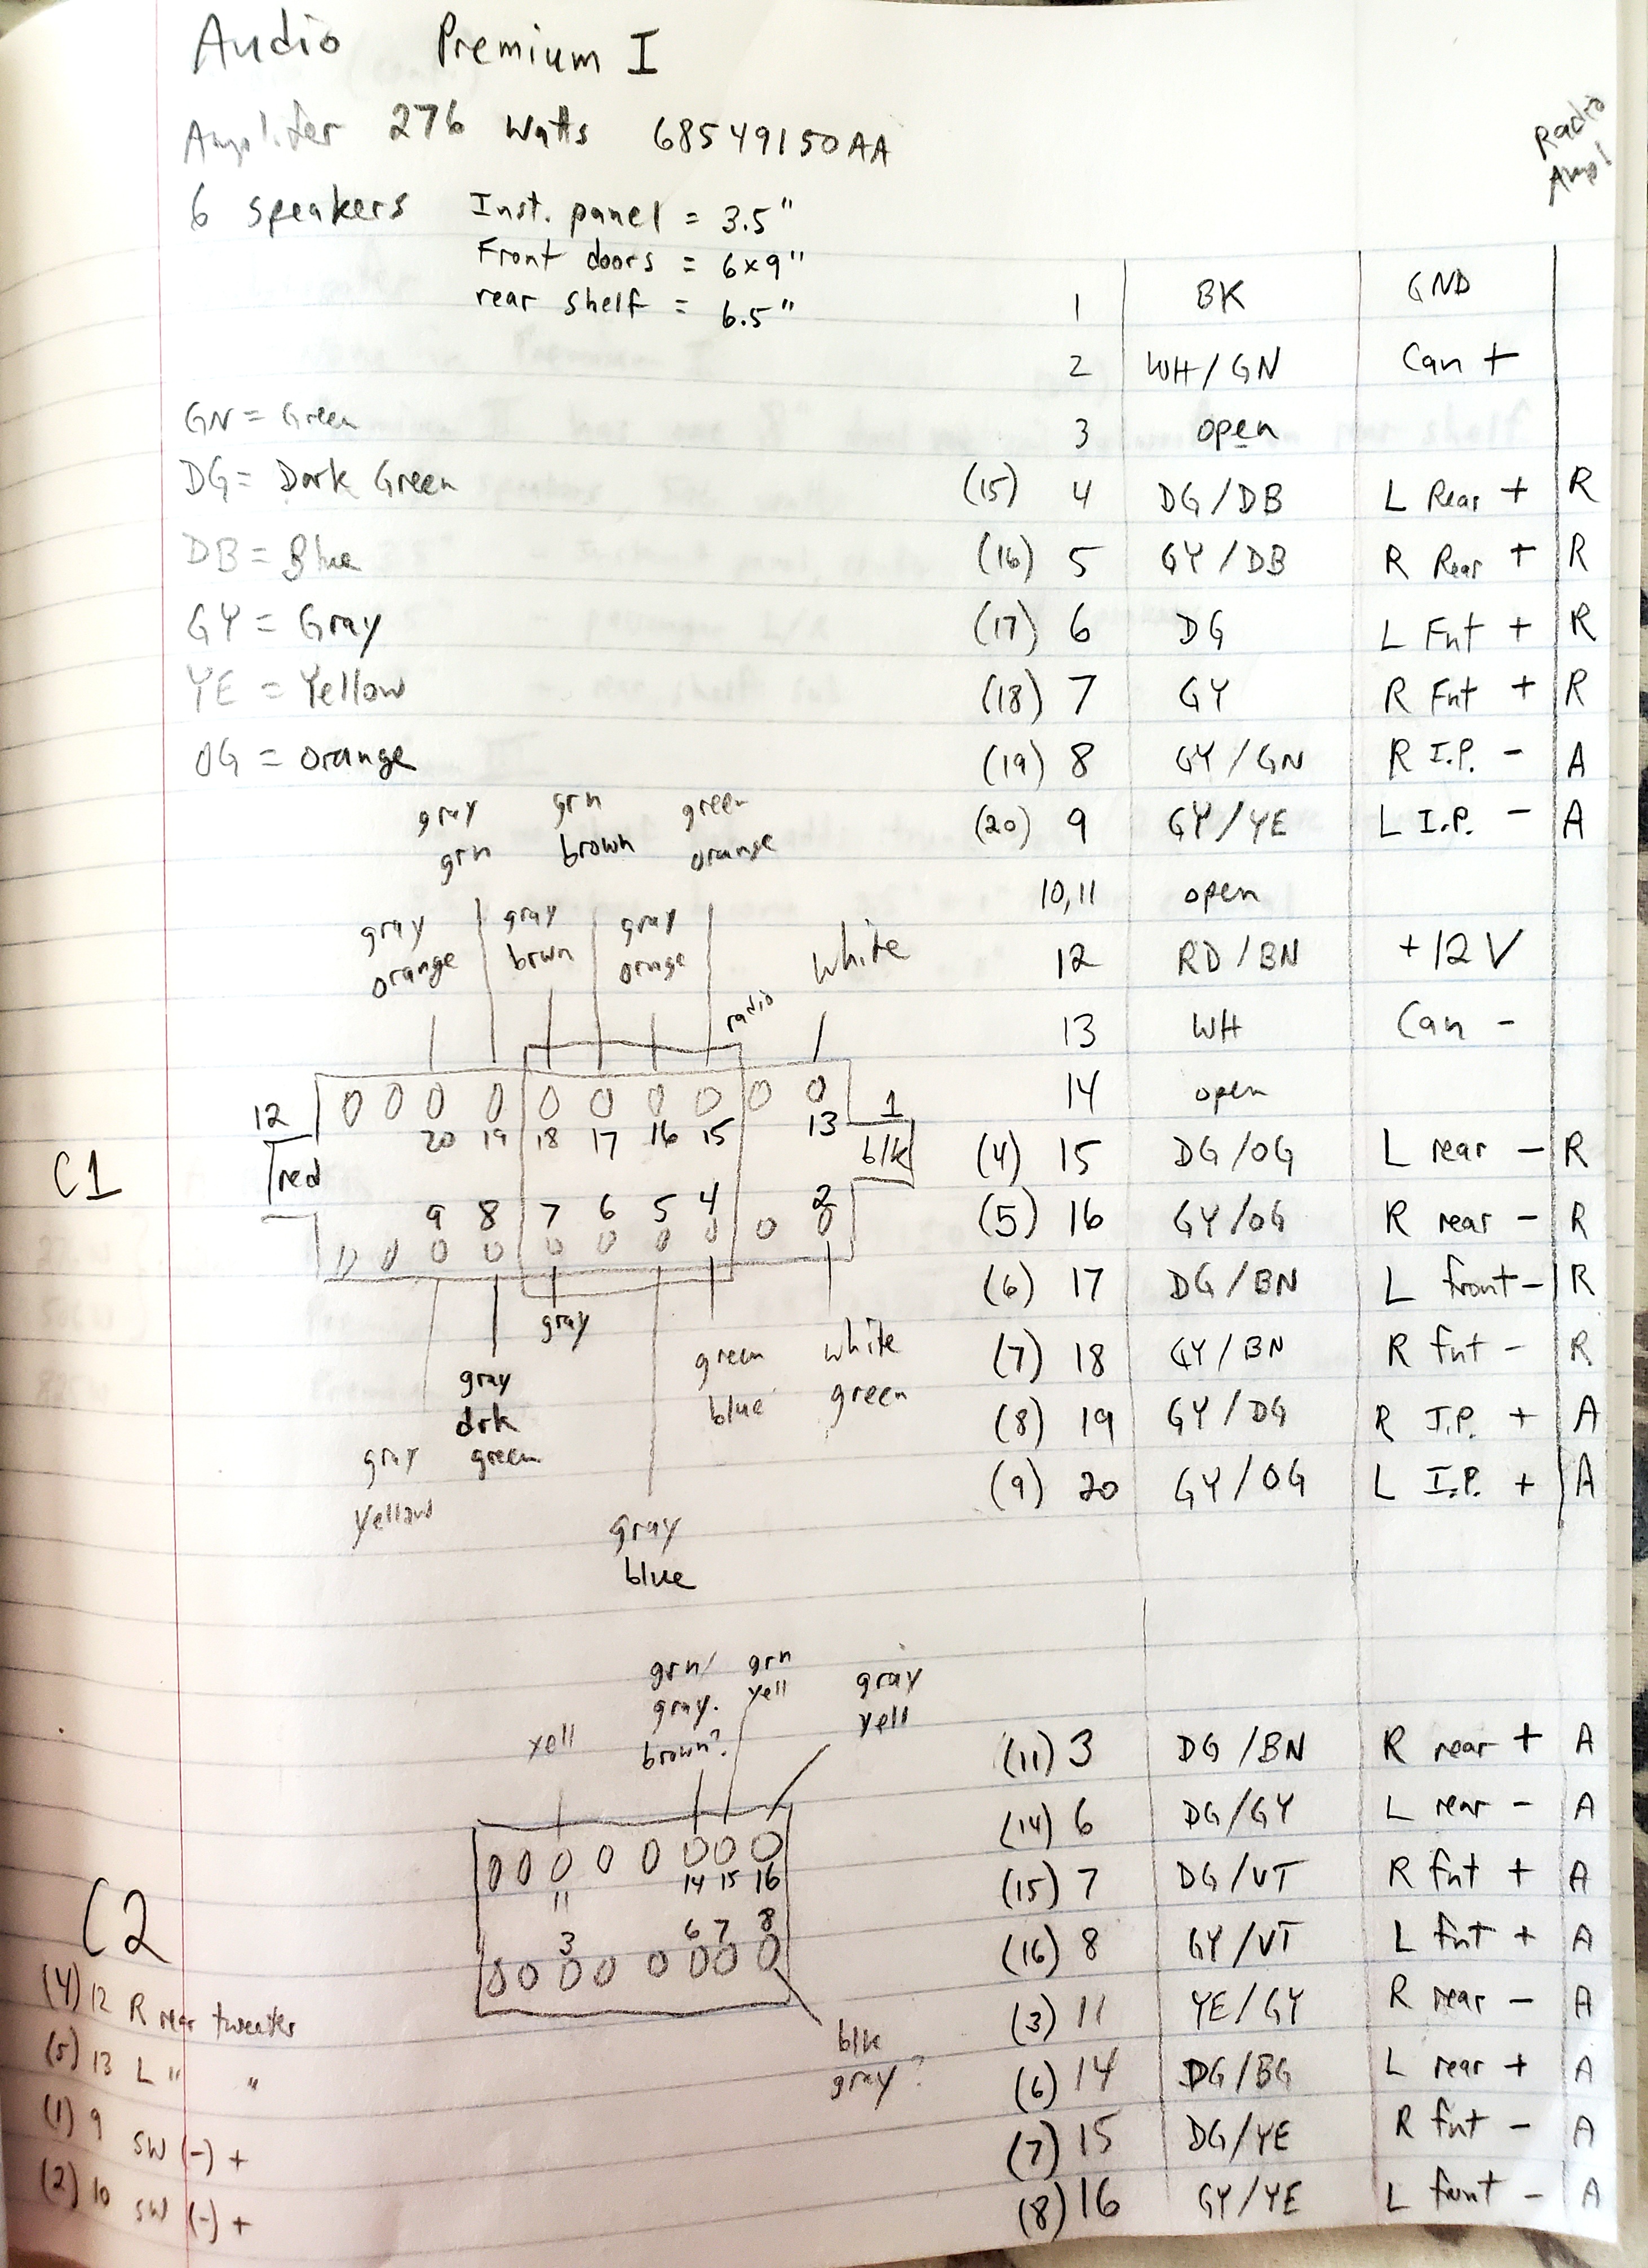 Audio Premium I
Amplifer 276 Watts 68549150AA
Radio
Ampl
6 speakers Inst. panel = 3.5"
Front doors = 6x9"
rear shelf = 6.5"
1 BK GND
2 WH/GN Can +
3 open
(15) 4 DG/DB L Rear + R
(16) 5 GY/DB R Rear + R
(17) 6 DG L Fnt + R
(18) 7 GY R Fnt + R
(19) 8 GY/GN R I.P. - A
(20) 9 GY/YE L I.P. - A
10,11 open
12 RD/BN +12V
13 WH Can -
14 open
(4) 15 DG/OG L rear - R
(5) 16 GY/OG R rear - R
(6) 17 DG/BN L front - R
(7) 18 GY/BN R fnt - R
(8) 19 GY/DG R I.P. + A
(9) 20 GY/OG L I.P. + A
GN = Green
DG = Dark Green
DB = Blue
GY = Gray
YE = Yellow
OG = orange
gray grn green
grn brown orange
gray gray gray white
orange brwn ornge
radio
12 1
20 19 18 17 16 15 13
C1 red blk
9 8 7 6 5 4 2
gray
gray green white
drk blue green
gray green
yellow
gray
blue
grn/ grn gray
gray. yell yell
yell brown?
11 14 15 16
C2
3 6 7 8
blk
gray?
(4) 12 R rear tweeter
(5) 13 L " "
(1) 9 SW (-) +
(2) 10 SW (-) +
(11) 3 DG/BN R rear + A
(14) 6 DG/GY L rear - A
(15) 7 DG/VT R fnt + A
(16) 8 GY/VT L fnt + A
(3) 11 YE/GY R rear - A
(6) 14 DG/BG L rear + A
(7) 15 DG/YE R fnt - A
(8) 16 GY/YE L front - A